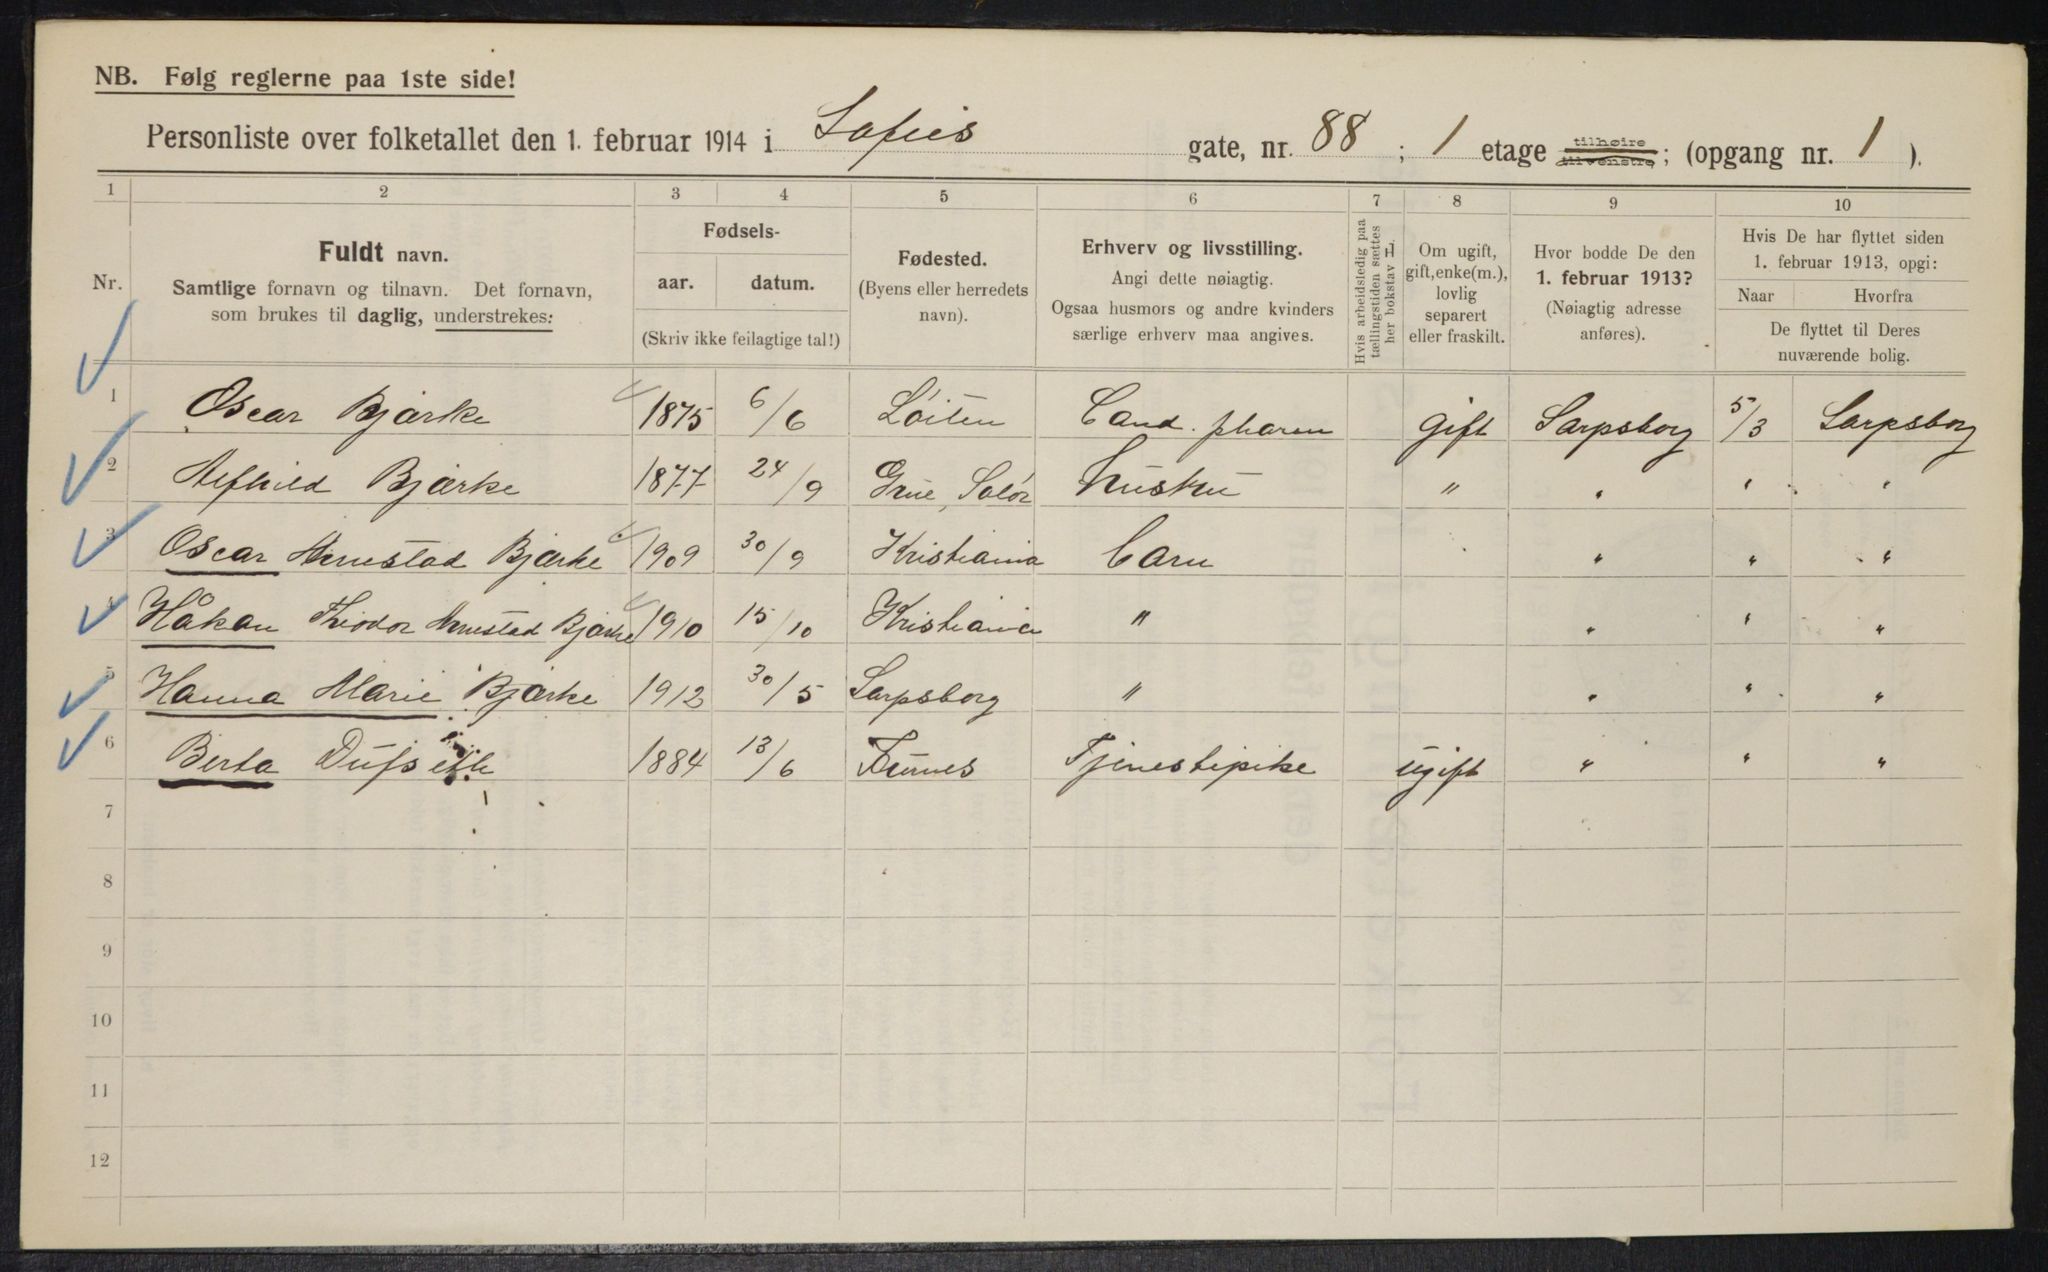 NB. Følg reglerne paa 1ste side!
Personliste over folketallet den 1. februar 1914 i Sofies gate, nr. 88 ; 1 etage tilhøire tilvenstre; (opgang nr. 1 ).
1 2 3 4 5 6 7 8 9 10
Nr.
Fuldt navn.
Samtlige fornavn og tilnavn. Det fornavn,
som brukes til daglig, understrekes:
Fødsels-
aar. datum.
(Skriv ikke feilagtige tal!)
Fødested.
(Byens eller herredets
navn).
Erhverv og livsstilling.
Angi dette nøiagtig.
Ogsaa husmors og andre kvinders
særlige erhverv maa angives.
Hvis arbeidsledig paa
tællingstiden sættes
her bokstav L.
Om ugift,
gift, enke(m.),
lovlig
separert
eller fraskilt.
Hvor bodde De den
1. februar 1913?
(Nøiagtig adresse
anføres).
Hvis De har flyttet siden
1. februar 1913, opgi:
Naar Hvorfra
De flyttet til Deres
nuværende bolig.
1 Oscar Bjærke 1875 6/6 Løiten Cand. pharm gift Sarpsborg 5/3 Sarpsborg
2 Alfhild Bjærke 1877 24/9 Grue, Solør Hustru " " " "
3 Oscar Bjærke 1909 30/9 Kristiania Barn " " "
4 Håkan Theodor Bjærke 1910 15/10 Kristiania " " " "
5 Hanna Marie Bjærke 1912 30/5 Sarpsborg " " " "
6 Berta 1884 13/6 Furnes Tjenestepike ugift " " "
7
8
9
10
11
12